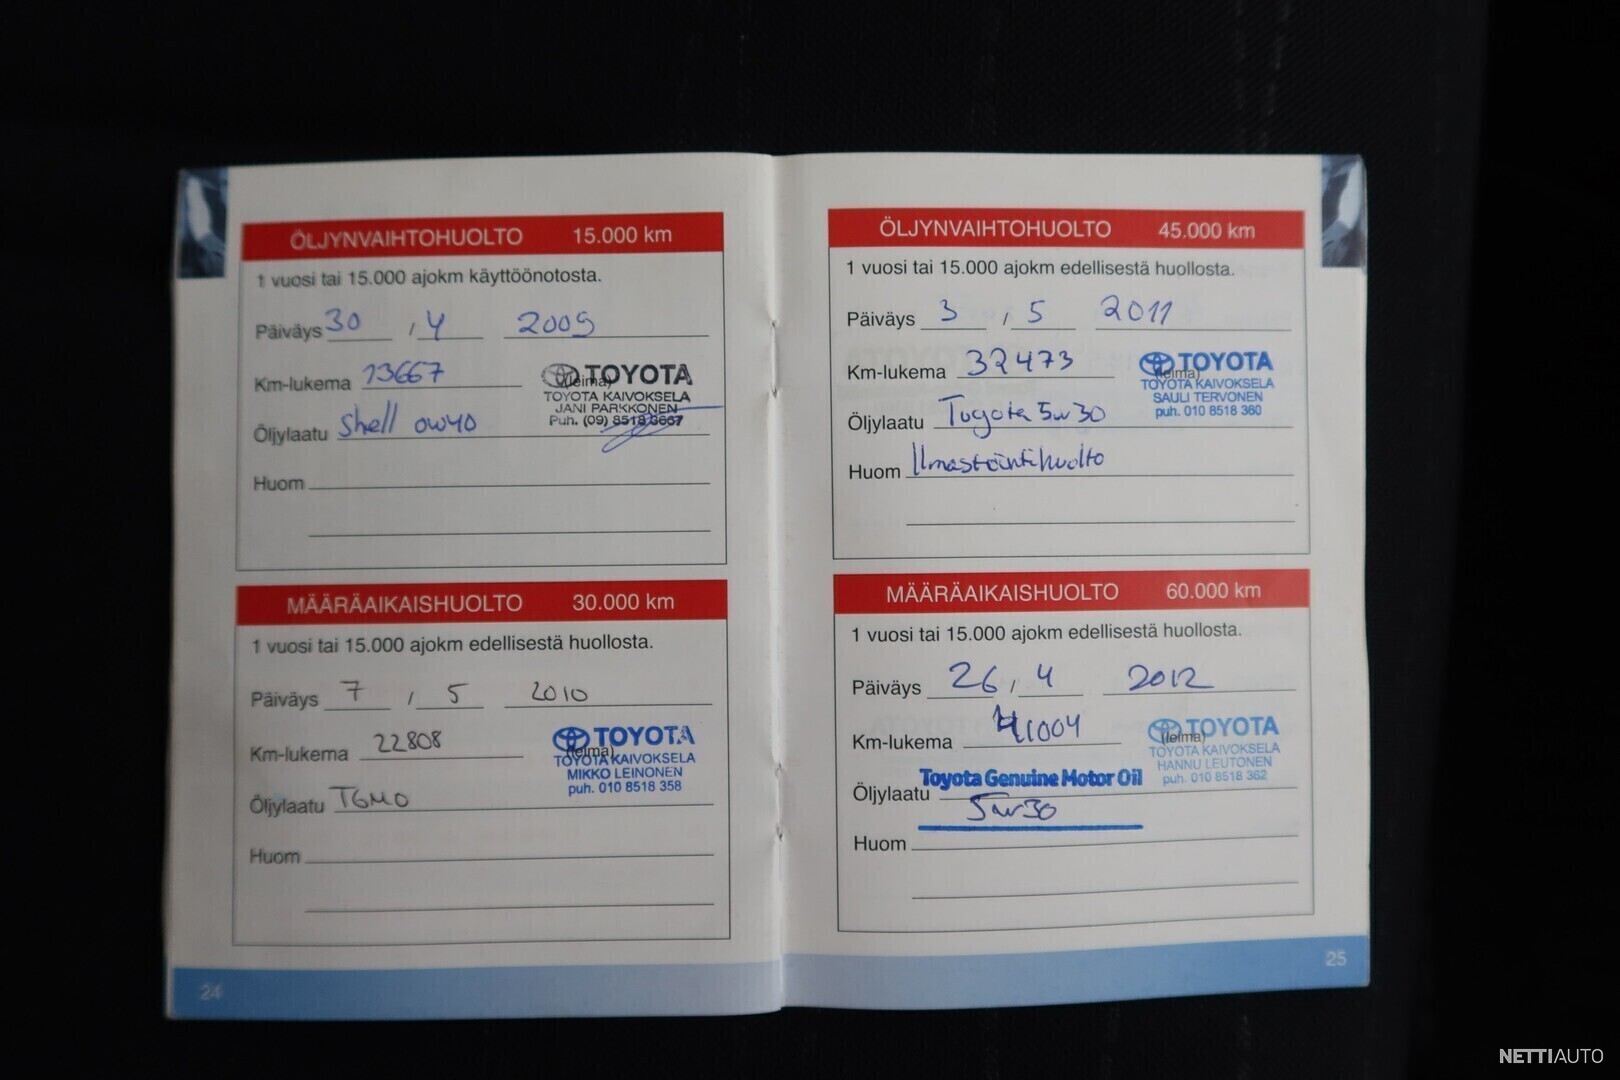 ÖLJYNVAIHTOHUOLTO 15.000 km
1 vuosi tai 15.000 ajokm käyttöönotosta.
Päiväys 30 / 4 2009
Km-lukema 13667
(leima)
TOYOTA
TOYOTA KAIVOKSELA
JANI PARKKONEN
Puh. (09) 8518 3667
Öljylaatu Shell 0W40
Huom
MÄÄRÄAIKAISHUOLTO 30.000 km
1 vuosi tai 15.000 ajokm edellisestä huollosta.
Päiväys 7 / 5 2010
Km-lukema 22808
(leima)
TOYOTA
TOYOTA KAIVOKSELA
MIKKO LEINONEN
puh. 010 8518 358
Öljylaatu TGMO
Huom
24
ÖLJYNVAIHTOHUOLTO 45.000 km
1 vuosi tai 15.000 ajokm edellisestä huollosta.
Päiväys 3 / 5 2011
Km-lukema 32473
(leima)
TOYOTA
TOYOTA KAIVOKSELA
SAULI TERVONEN
puh. 010 8518 360
Öljylaatu Toyota 5w30
Huom Ilmastointihuolto
MÄÄRÄAIKAISHUOLTO 60.000 km
1 vuosi tai 15.000 ajokm edellisestä huollosta.
Päiväys 26 / 4 2012
Km-lukema 41004
(leima)
TOYOTA
TOYOTA KAIVOKSELA
HANNU LEUTONEN
puh. 010 8518 362
Toyota Genuine Motor Oil
Öljylaatu 5w30
Huom
25
NETTIAUTO